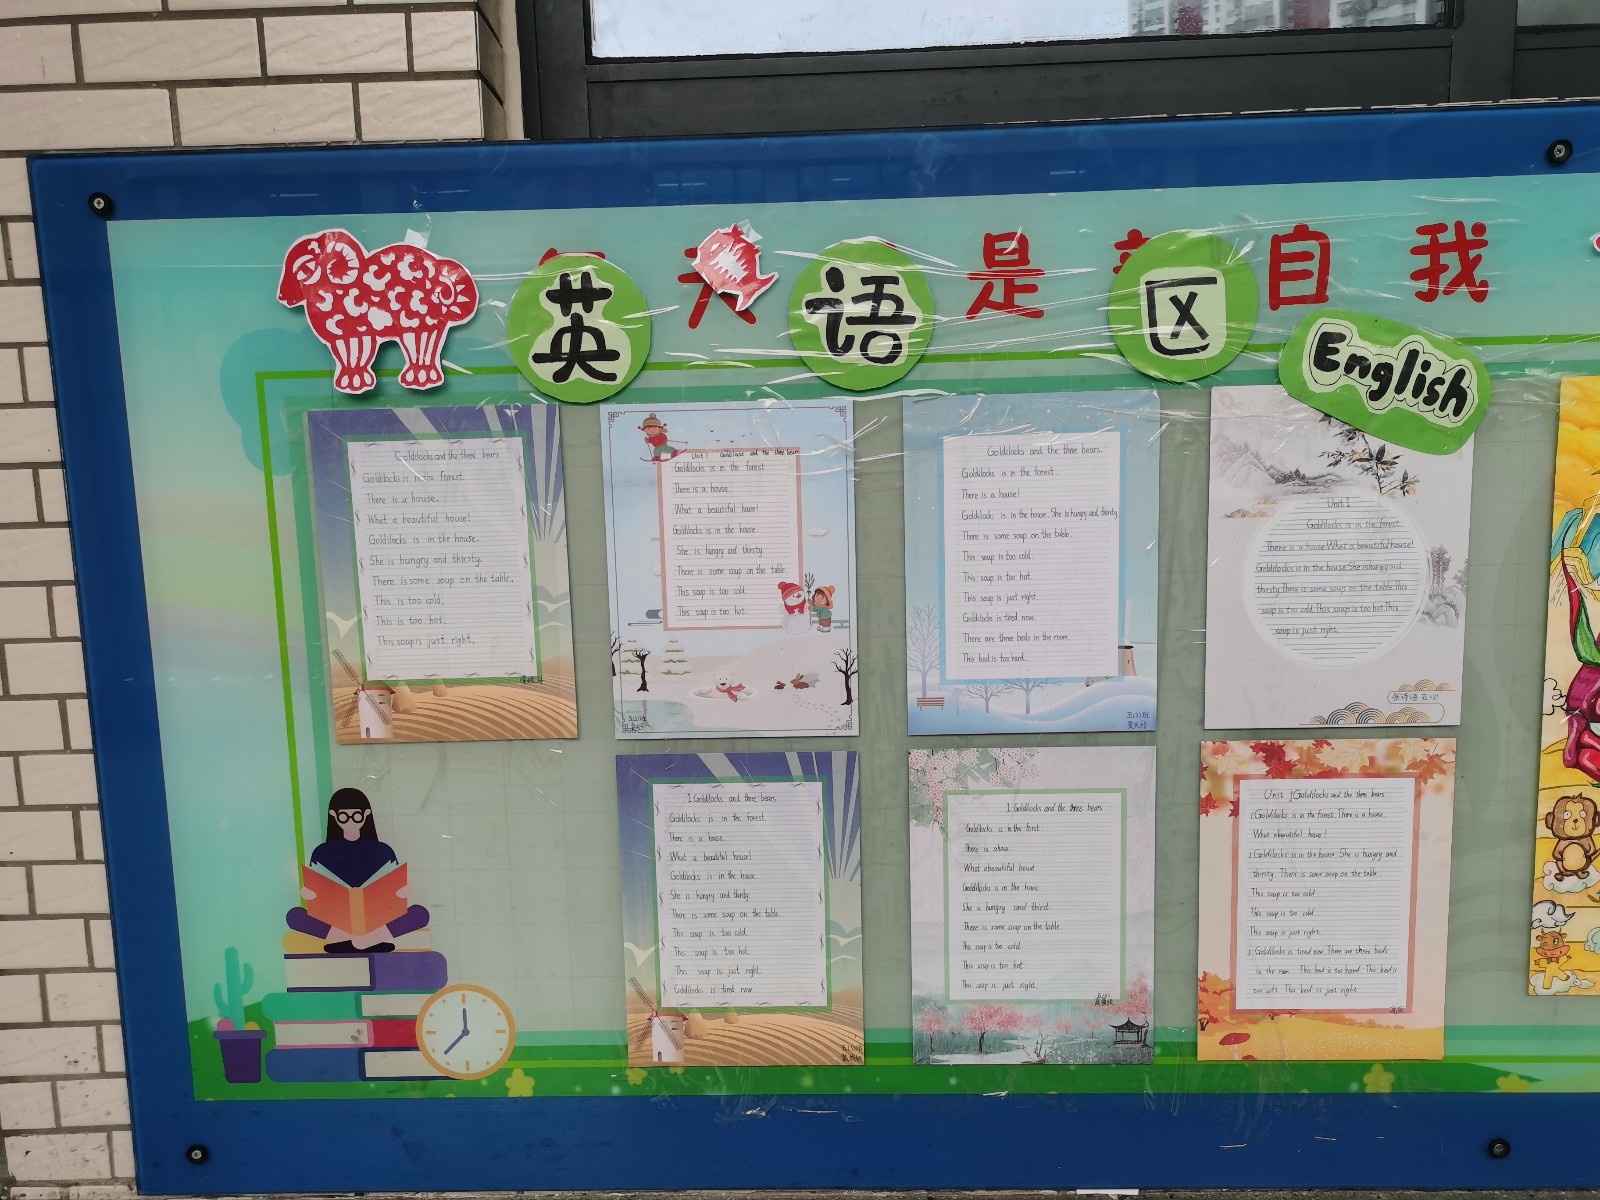 天 是 自 我
英 语 区
English
Goldilocks and the three bears
Goldilocks is in the forest.
There is a house.
What a beautiful house!
Goldilocks is in the house.
She is hungry and thirsty.
There is some soup on the table.
This is too cold.
This is too hot.
This soup is just right.
Unit 1 Goldilocks and the three bears
Goldilocks is in the forest.
There is a house.
What a beautiful house!
Goldilocks is in the house.
She is hungry and thirsty.
There is some soup on the table.
This soup is too cold.
This soup is too hot.
五(3)班
Goldilocks and the three bears.
Goldilocks is in the forest.
There is a house!
Goldilocks is in the house. She is hungry and thirsty.
There is some soup on the table.
This soup is too cold.
This soup is too hot.
This soup is just right.
Goldilocks is tired now.
There are three beds in the room.
This bed is too hard.
五(3)班
Unit 1
Goldilocks is in the forest.
There is a house.What a beautiful house!
Goldilocks is in the house.She is hungry and
thirsty.There is some soup on the table.This
soup is too cold.This soup is too hot.This
soup is just right.
1 Goldilocks and three bears
Goldilocks is in the forest.
There is a house.
What a beautiful house!
Goldilocks is in the house.
She is hungry and thirsty.
There is some soup on the table.
This soup is too cold.
This soup is too hot.
This soup is just right.
Goldilocks is tired now.
1. Goldilocks and the three bears
Goldilocks is in the
There is
What abeautiful
Goldilocks is in the
She is hungry and thirst.
There is some soup on the table.
This soup is too cold.
This soup is too hot.
This soup is just right.
Unit 1 Goldilocks and the three bears
1 Goldilocks is in the forest. There is a house.
What abeautiful house!
2 Goldilocks is in the house. She is hungry and
thirsty. There is some soup on the table.
This soup is too cold.
This soup is too cold.
This soup is just right.
3 Goldilocks is tired now There are three beds
in the room. This bed is too hard. This bed is
too soft. This bed is just right.